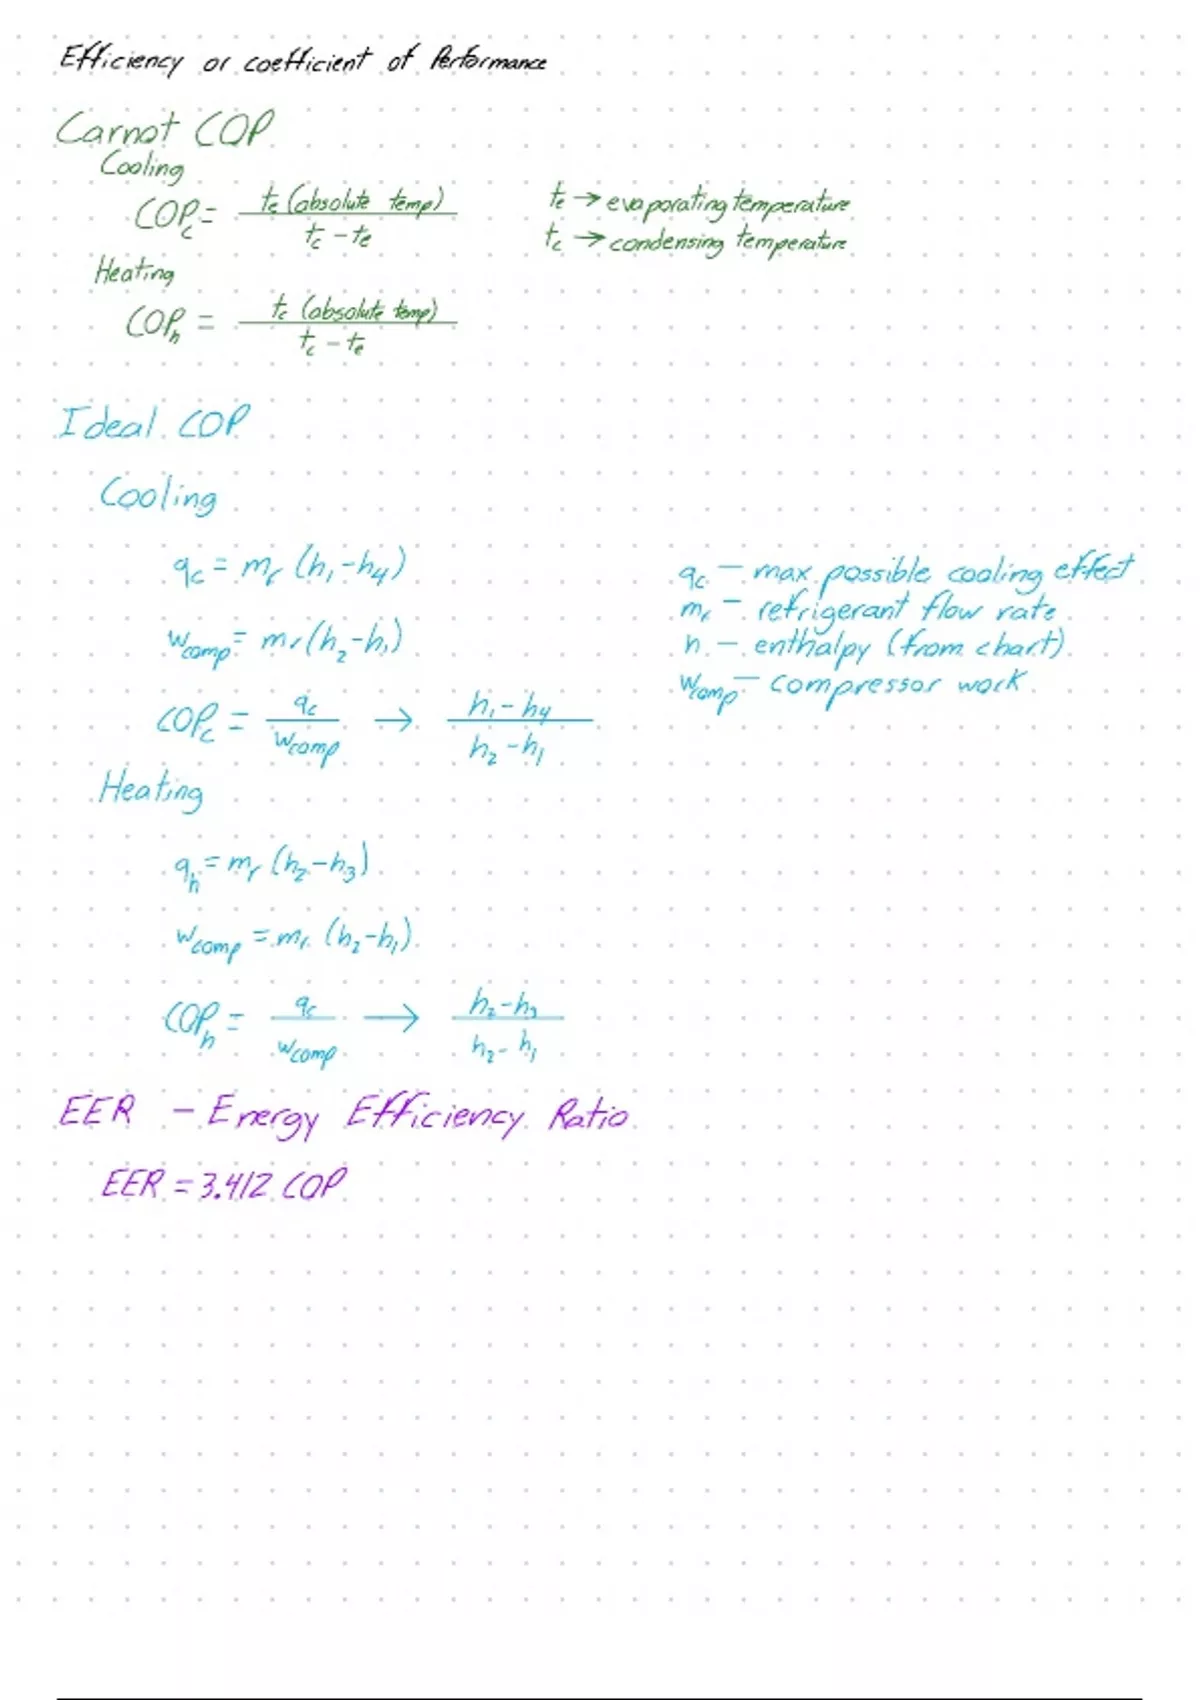 Efficiency or coefficient of Performance
Carnot COP
Cooling
COP_c = t_e (absolute temp) / t_c - t_e
t_e → evaporating temperature
t_c → condensing temperature
Heating
COP_h = t_c (absolute temp) / t_c - t_e
Ideal COP
Cooling
q_c = m_r (h_1 - h_4)
w_comp = m_r (h_2 - h_1)
COP_c = q_c / w_comp → h_1 - h_4 / h_2 - h_1
q_c - max possible cooling effect
m_r - refrigerant flow rate
h - enthalpy (from chart)
w_comp - compressor work
Heating
q_h = m_r (h_2 - h_3)
w_comp = m_r (h_2 - h_1)
COP_h = q_c / w_comp → h_2 - h_3 / h_2 - h_1
EER - Energy Efficiency Ratio
EER = 3.412 COP